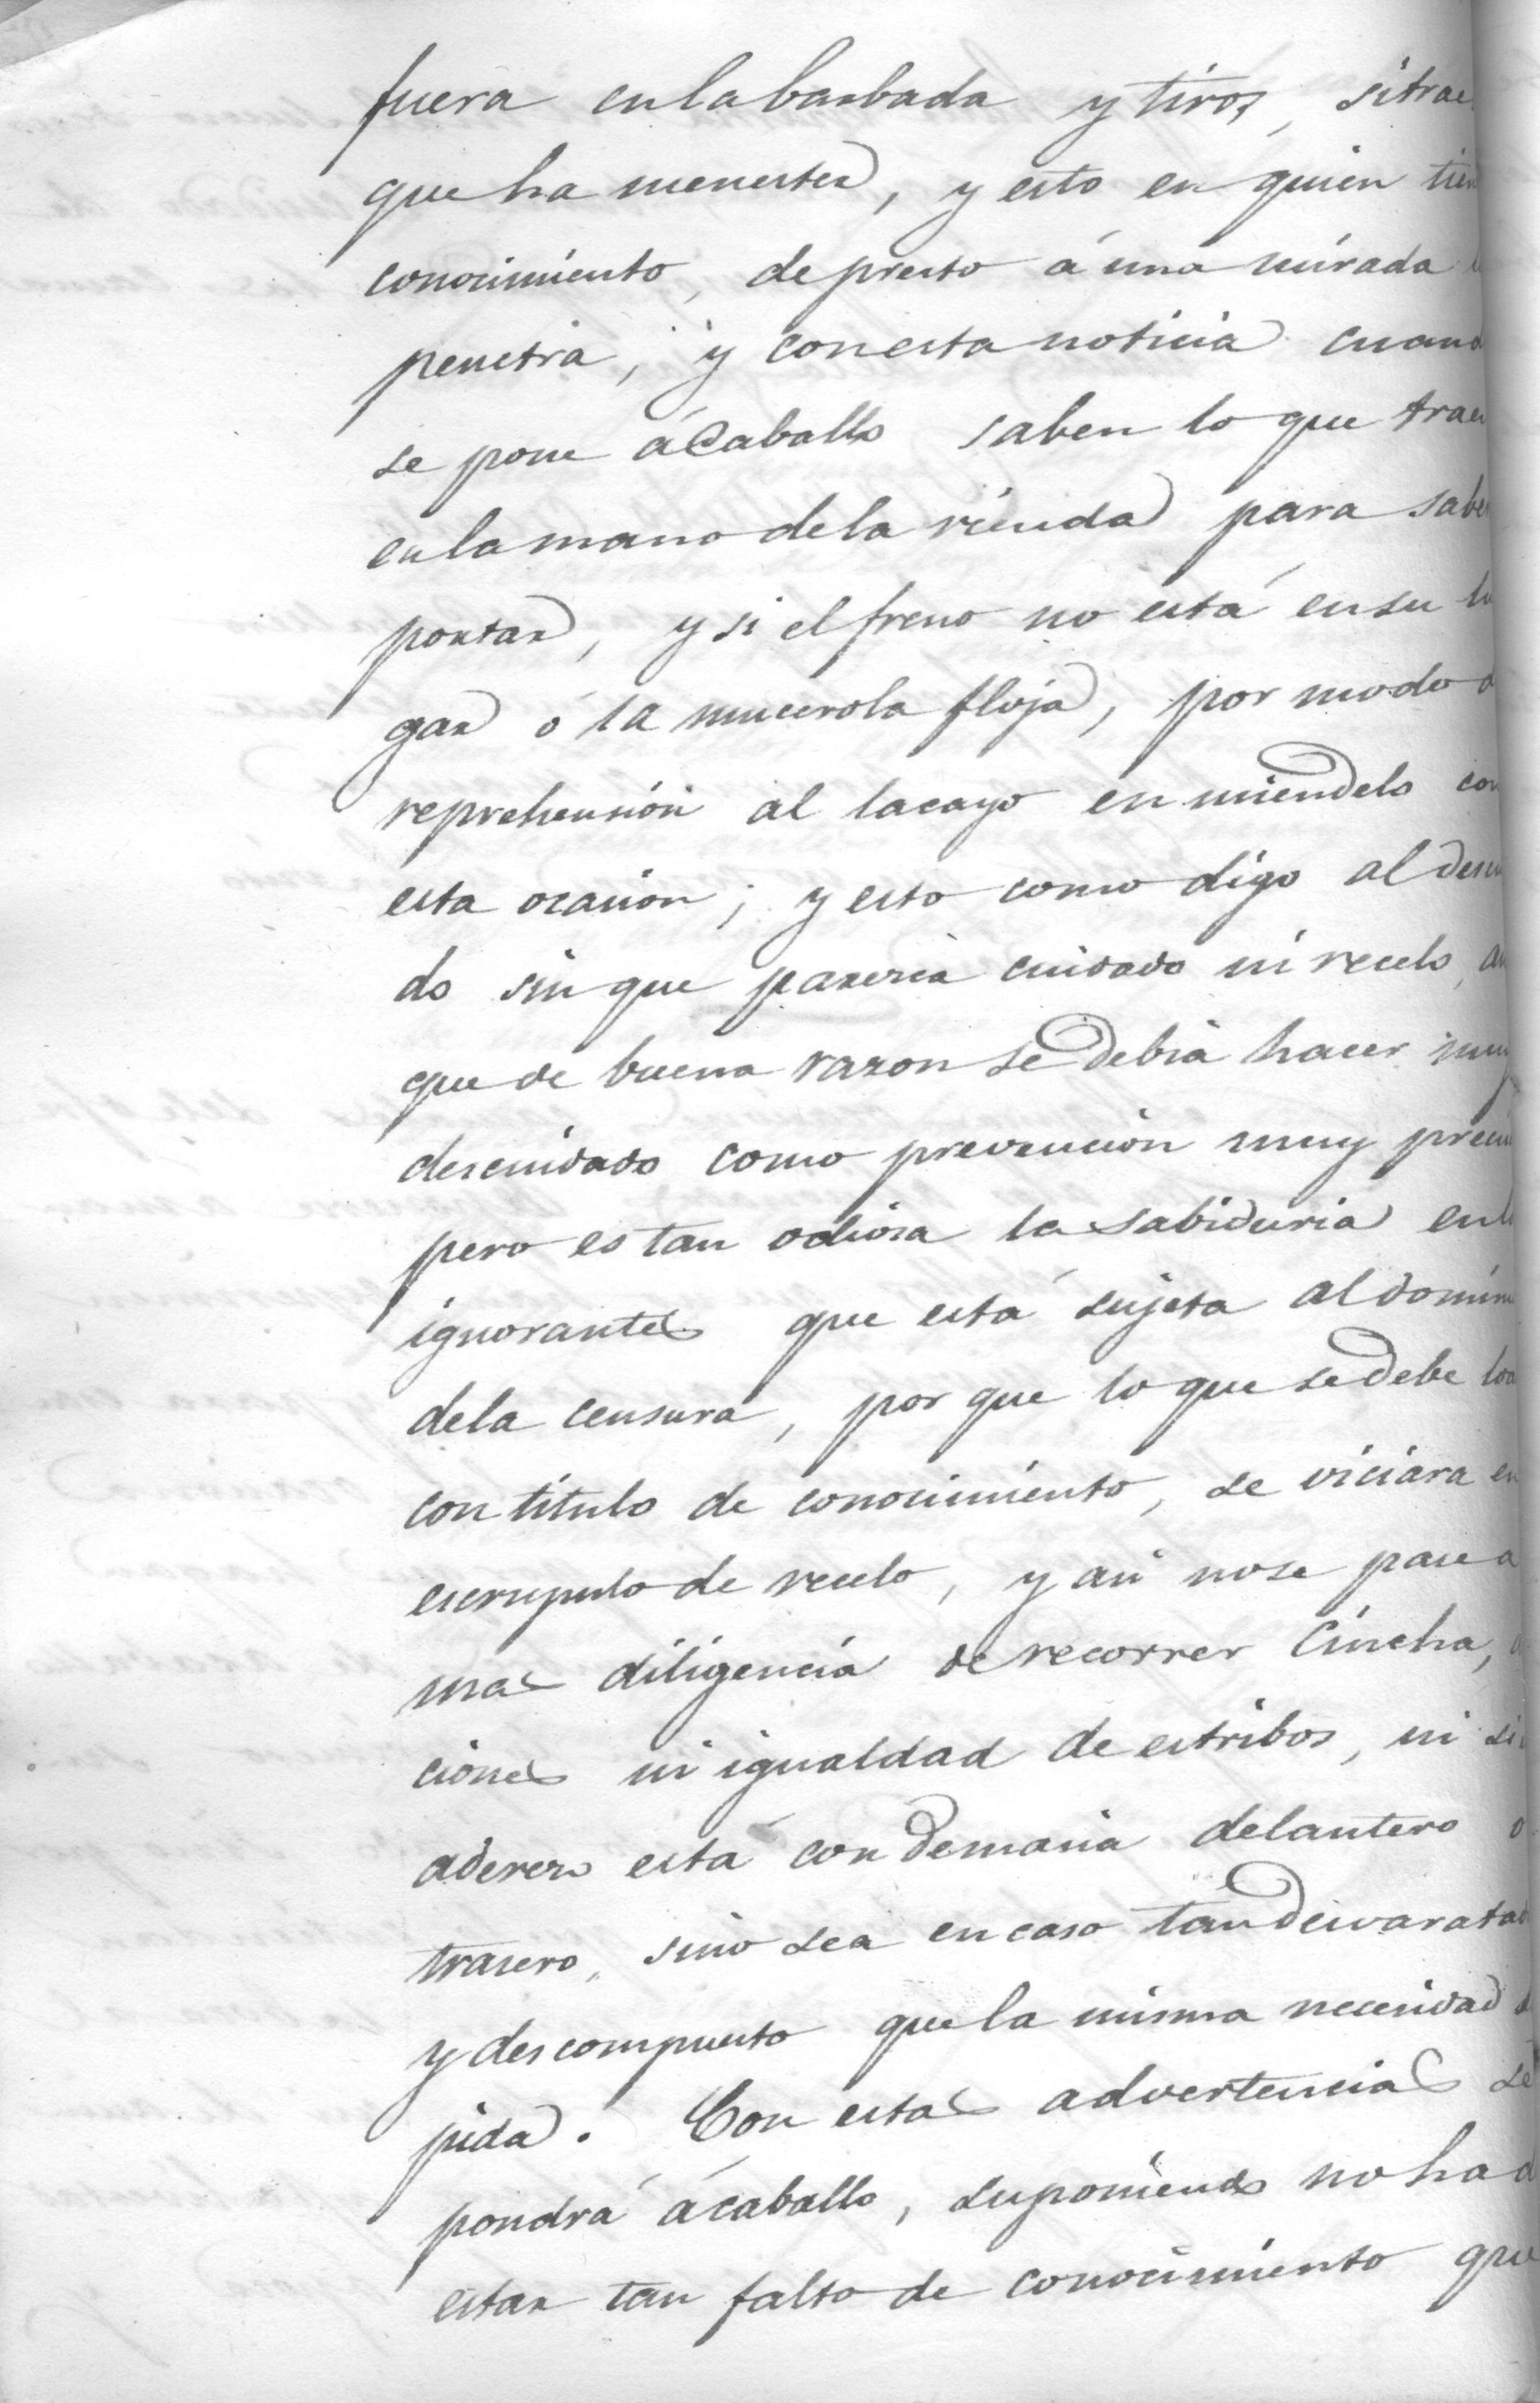 fuera en la barbada y tiros, si trae
que ha menester, y esto en quien tien
conocimiento, de presto á una mirada
penetra, y con esta noticia cuand
se pone á Caballo saben lo que trae
en la mano de la rienda para sabe
portar, y si el freno no está en su lu
gar ó la mucerola floja, por modo d
reprehensión al lacayo enmiendelo con
esta ocasion; y esto como digo al descui
do sin que parezca cuidado ni recelo, au
que de buena razon se debia hacer muy
descuidado como prevencion muy preci
pero es tan odiosa la sabiduria en l
ignorantes que está sujeta al domin
de la censura, por que lo que se debe loa
con titulo de conocimiento, se viciara en
escrupulo de recelo, y asi no se pase a
mas diligencia de recorrer Cincha,
ciones ni igualdad de estribos, ni si
aderezo está con demasia delantero o
trasero, sino sea en caso tan desvaratad
y descompuesto que la misma necesidad
pida. Con estas advertencias se
pondrá á caballo, suponiendo no ha d
estar tan falto de conocimiento que